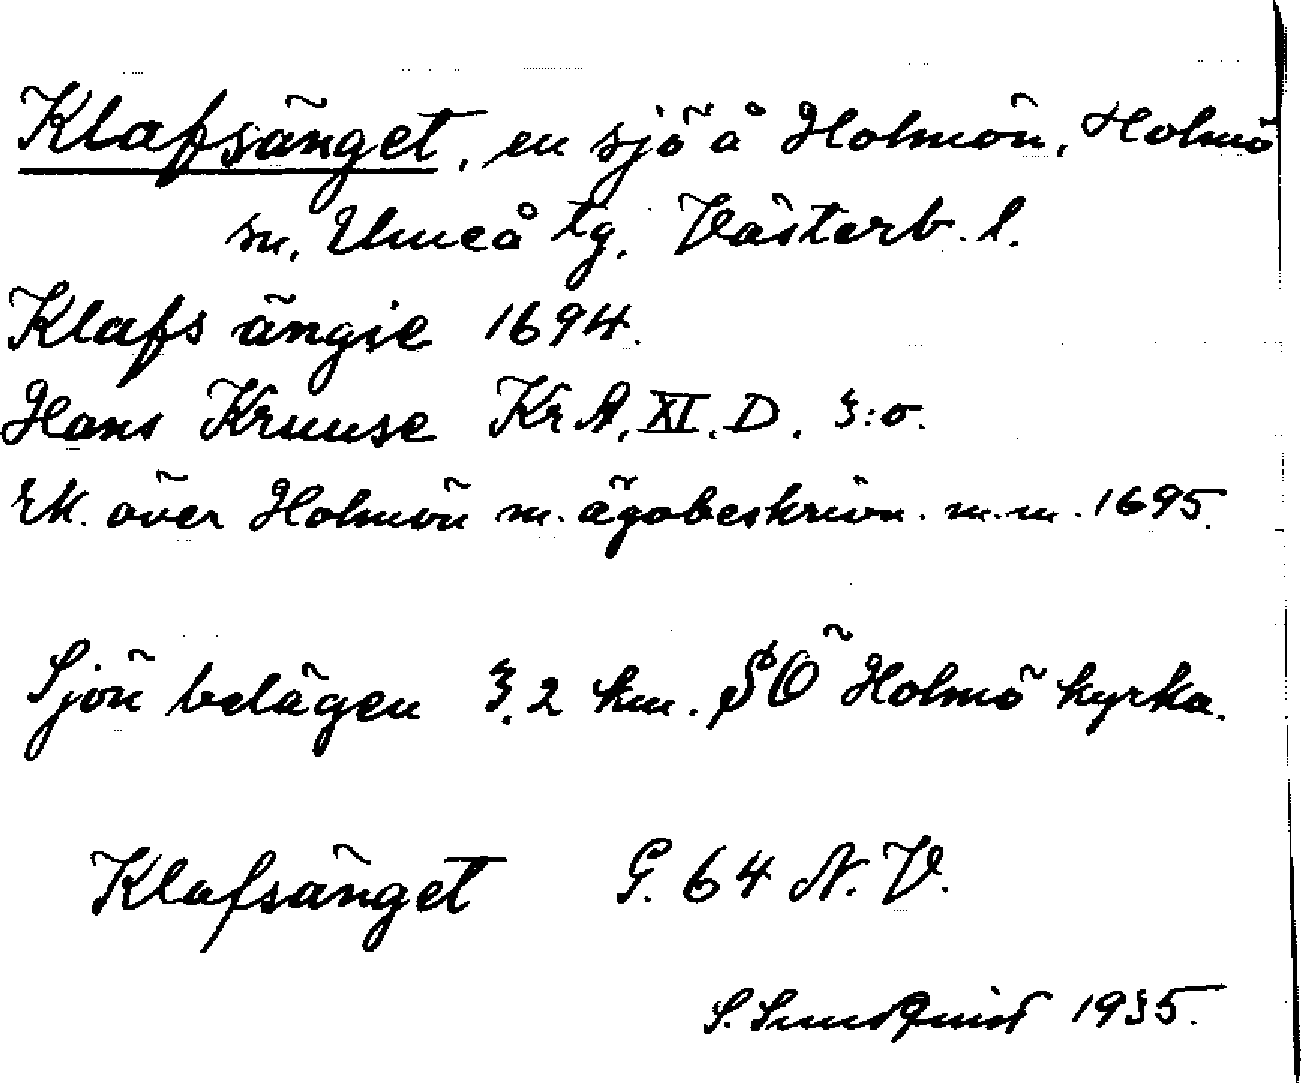 Klafsänget, en sjö å Holmön, Holmö
sn, Umeå tg. Västerb. l.
Klafs ängie 1694.
Hans Kruuse KrA, XI. D. 3:o.
EK. över Holmön m. ägobeskrivn. m.m. 1695.
Sjön belägen 3,2 km. SÖ Holmö kyrka.
Klafsänget G. 64 N. V.
S. Sundquist 1935.